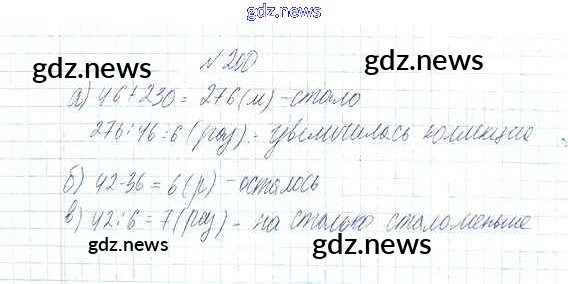 gdz.news
gdz.news
№ 200
gdz.news
gdz.news
а) 46+230 = 276 (м) - стало
276:46=6 (раз) - увеличилась коллекция
б) 42-36 = 6 (р) - осталось
в) 42:6=7 (раз) - на столько стало меньше
gdz.news
gdz.news
gdz.news